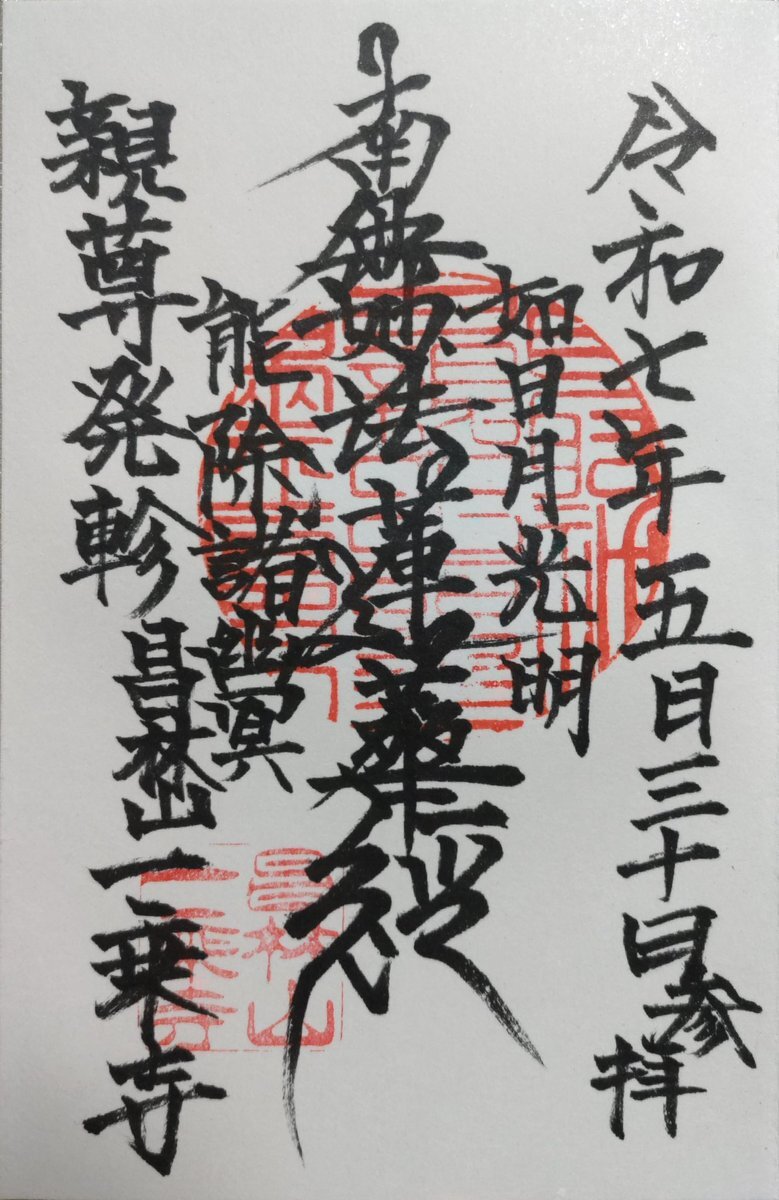 令和七年五月三十日参拝
如日月光明
南無妙法蓮華経
能除諸幽冥
親尊発軫
昌林山一乗寺
昌林山
一乗寺